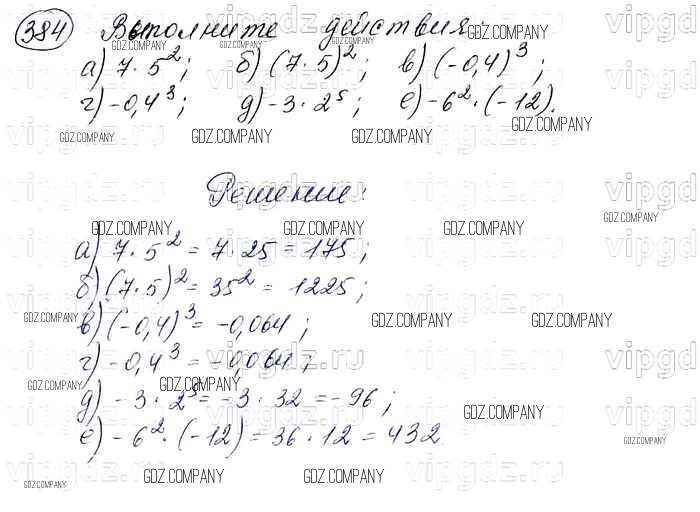 384 Выполните действия:
а) 7·5²; б) (7·5)²; в) (-0,4)³;
г) -0,4³; д) -3·2⁵; е) -6²·(-12).
Решение:
а) 7·5² = 7·25 = 175;
б) (7·5)² = 35² = 1225;
в) (-0,4)³ = -0,064;
г) -0,4³ = -0,064;
д) -3·2⁵ = -3·32 = -96;
е) -6²·(-12) = 36·12 = 432
GDZ.COMPANY
vipgdz.ru